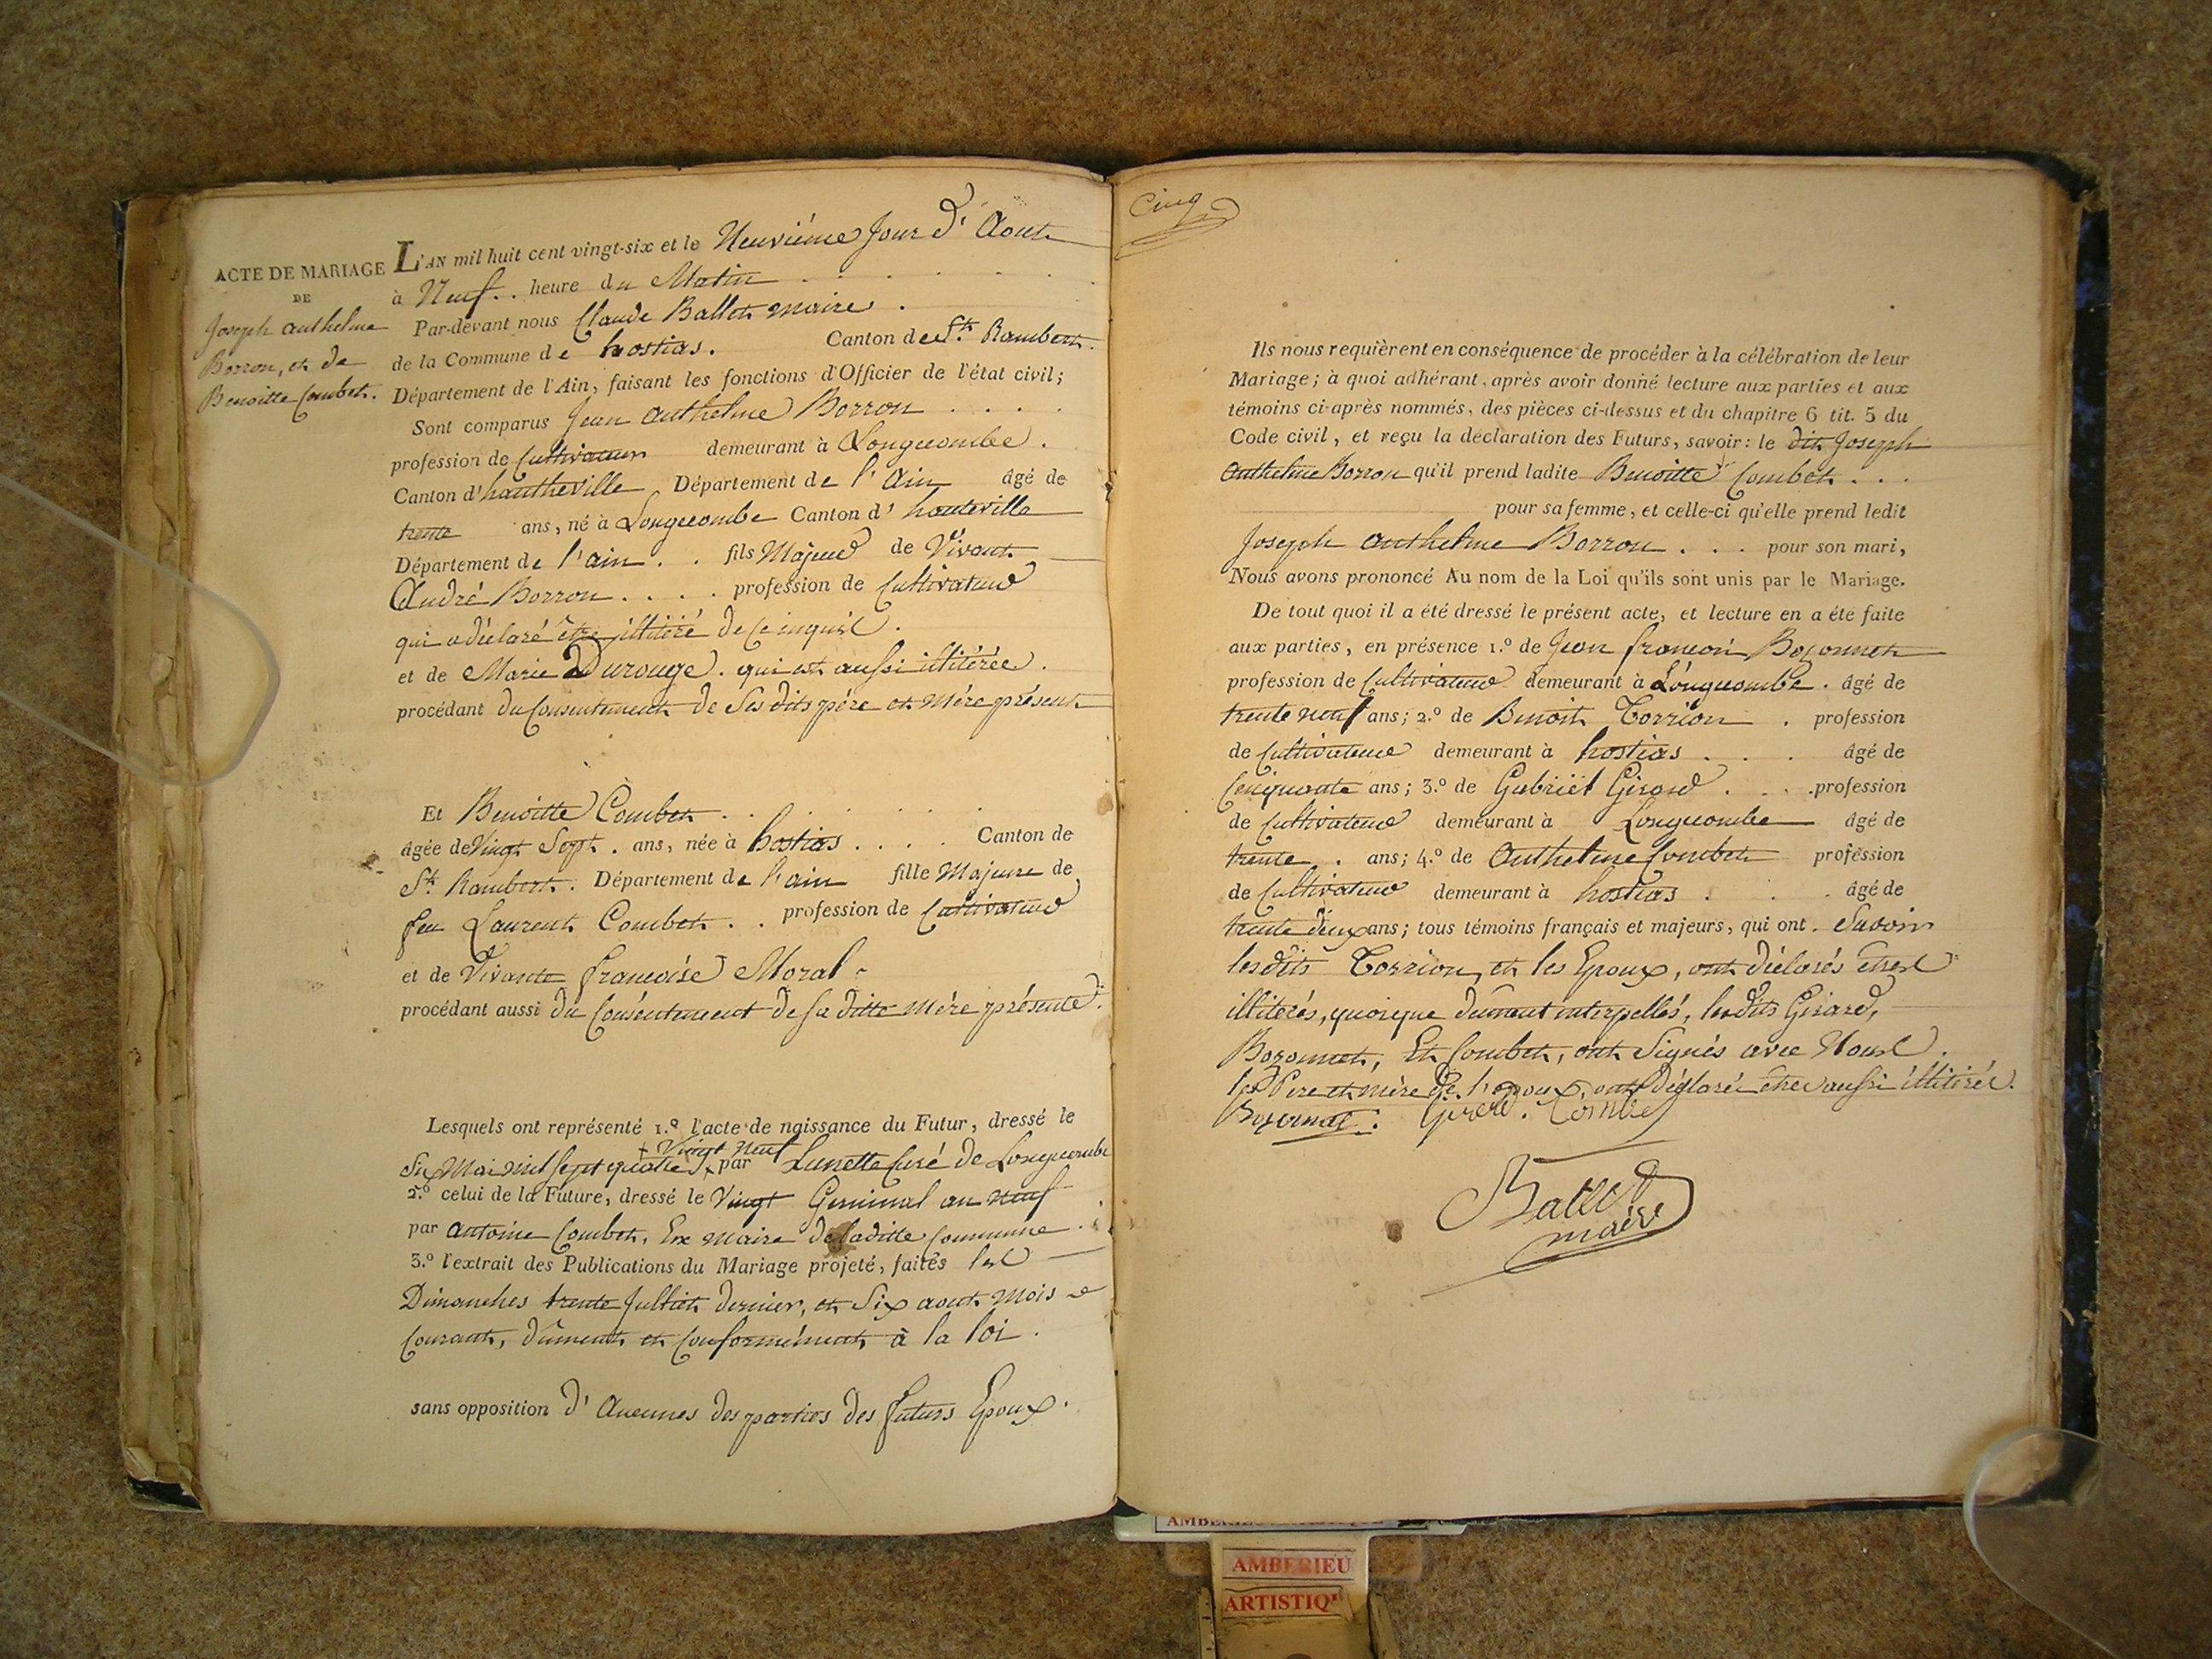 ACTE DE MARIAGE
DE
Joseph anthelme
Borron, et de
Benoitte Combet.
L'AN mil huit cent vingt-six et le Neuviéme Jour d'Aout
à Neuf.. heure du Matin
Par-devant nous Claude Ballet maire.
de la Commune de hostias. Canton de St. Rambert.
Département de l'Ain, faisant les fonctions d'Officier de l'état civil;
Sont comparus Jean anthelme Borron
profession de Cultivateur demeurant à Longecombe.
Canton d'hautheville Département de l'Ain âgé de
trente ans, né à Longecombe Canton d'hauteville
Département de l'ain.. fils Majeur de Vivant
André Borron.... profession de Cultivateur
qui a déclaré être illitéré de ce inquis.
et de Marie Durouge. qui est aussi illitérée.
procédant du Consentement de Ses dits père et mère présent
Et Benoitte Combet
âgée de Vingt Sept. ans, née à hostias.... Canton de
St. Rambert. Département de l'ain fille Majeure de
feu Laurent Combet.. profession de Cultivateur
et de Vivante francoise Moral
procédant aussi du Consentement de sa ditte mère présente.
Lesquels ont représenté 1.º l'acte de naissance du Futur, dressé le
+ Vingt Neuf
Six Mai mil sept quatre + par Lunette Curé de Longecombe
2.º celui de la Future, dressé le Vingt Germinal an neuf
par antoine Combet, Ex maire de laditte Commune.
3.º l'extrait des Publications du Mariage projeté, faites les
Dimanches trente Julliet dernier, et Six aout mois
Courant, dûment et Conformément à la loi.
sans opposition d'Aucunes des parties des futurs Epoux.
Cinq
Ils nous requièrent en conséquence de procéder à la célébration de leur
Mariage; à quoi adhérant, après avoir donné lecture aux parties et aux
témoins ci-après nommés, des pièces ci-dessus et du chapitre 6 tit. 5 du
Code civil, et reçu la déclaration des Futurs, savoir: le dit Joseph
Anthelme Borron qu'il prend ladite Benoitte Combet...
pour sa femme, et celle-ci qu'elle prend ledit
Joseph anthelme Borron... pour son mari,
Nous avons prononcé Au nom de la Loi qu'ils sont unis par le Mariage.
De tout quoi il a été dressé le présent acte, et lecture en a été faite
aux parties, en présence 1.º de Jean francois Bozonnet
profession de Cultivateur demeurant à Longecombe. âgé de
trente neuf ans; 2.º de Benoit Torrion. profession
de Cultivateur demeurant à hostias... âgé de
Cinquante ans; 3.º de Gabriël Girard... profession
de Cultivateur demeurant à Longecombe âgé de
trente. ans; 4.º de Anthelme Combet profession
de Cultivateur demeurant à hostias... âgé de
trente deux ans; tous témoins français et majeurs, qui ont. Savoir
les dits Torrion, et les Epoux, ont déclarés etres
illitérés, quoique dûment interpellés, les dits Girard,
Bozonnet, Et Combet, ont Signés avec Nous.
les Pere et mère de l'epoux, ont déclaré etre aussi illitirés.
Bozonnet. Girard. Combet
Ballet
maire
AMBERIEU
ARTISTIQ